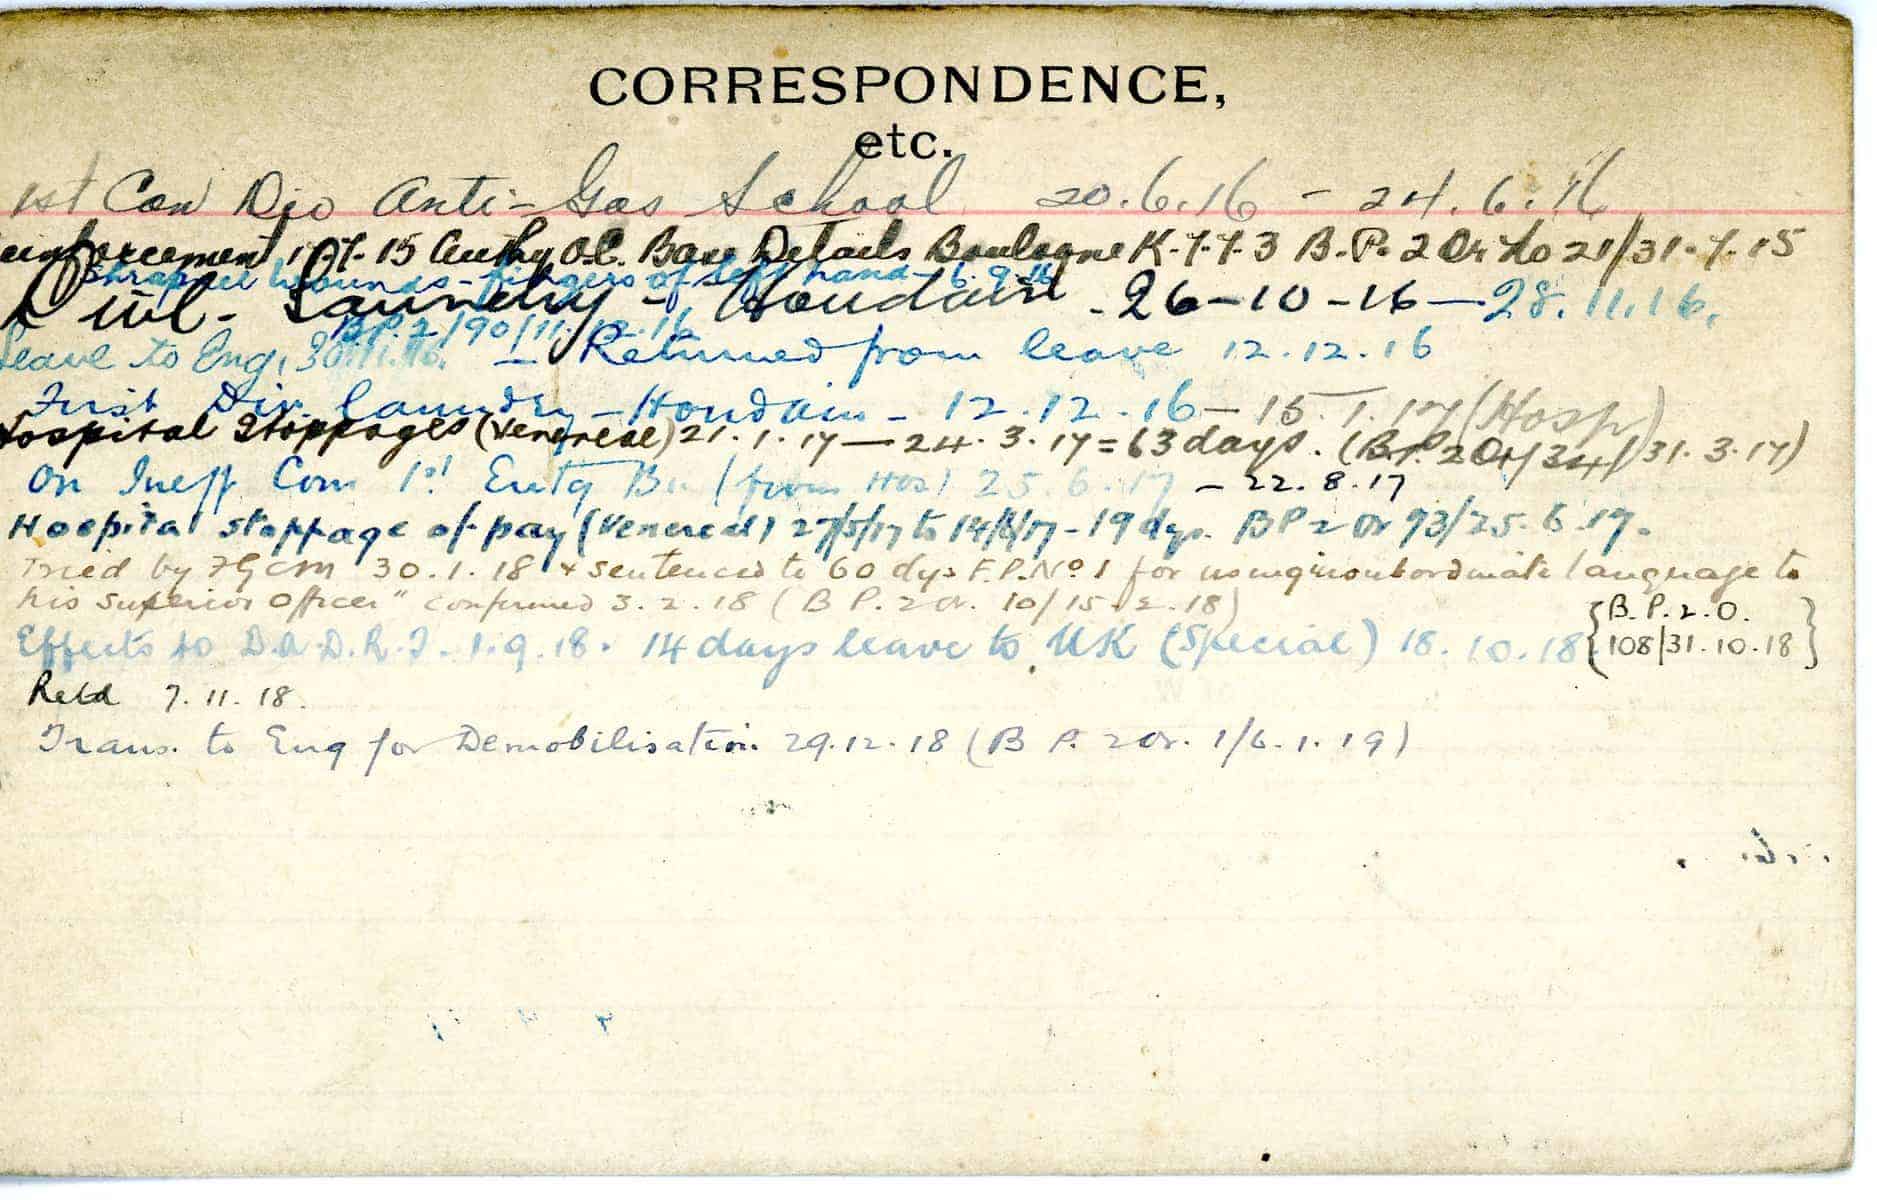 CORRESPONDENCE,
etc.
1st Can Div Anti-Gas School 20.6.16 - 24.6.16
einforcement 17.7.15 Authy O.C. Base Details Boulogne K.7.7.3 B.P. 2 Or No 21/31.7.15
Shrapnel wounds - fingers of left hand - 6.9.16
Laundry - Houdain - 26-10-16 - 28.11.16.
B.P.2/90/11.12.16
Leave to Eng, 30.11.16. - Returned from leave 12.12.16
First Div. Laundry - Houdain - 12.12.16 - 15.1.17 (Hosp)
Hospital Stoppages (Venereal) 21.1.17 - 24.3.17 = 63 days. (B.P. 2 Or/34/31.3.17)
On Ineff Com 1st Entg Bn (from Hos) 25.6.17 - 22.8.17
Hospital stoppage of pay (Venereal) 27/5/17 to 14/6/17 - 19 dys. BP 2 Or 73/25.6.17.
Tried by FGCM 30.1.18 & sentenced to 60 dys F.P. No 1 for using "insubordinate language to
his superior Officer" confirmed 3.2.18 (B P. 2 Or. 10/15.2.18)
Effects to D.A.D.R.T. 1.9.18. 14 days leave to UK (Special) 18.10.18 {B.P.2.O.
108/31.10.18}
Retd 7.11.18.
Trans. to Eng for Demobilisation 29.12.18 (B P. 2 Or. 1/6.1.19)